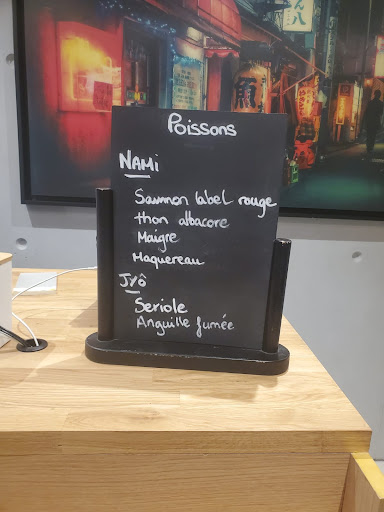 Poissons
NAMI
Saumon label rouge
thon albacore
Maigre
Maquereau
JYÔ
Seriole
Anguille fumée